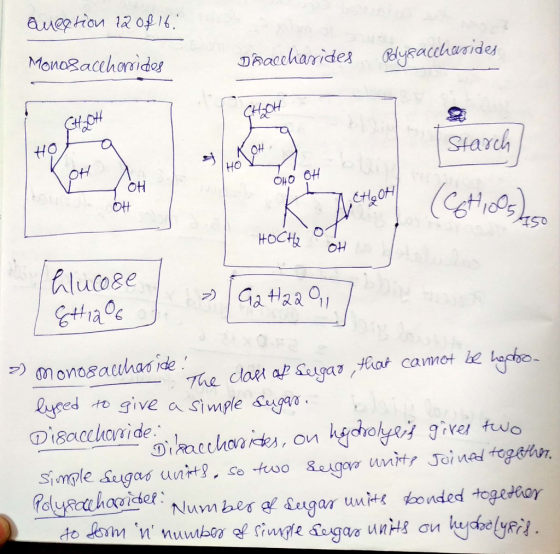 Question 12 of 16:
Monosaccharides Disaccharides Polysaccharides
CH2OH
HO O
OH
OH
OH
⇒
CH2OH
O
OH
HO
OHO OH
CH2OH
HOCH2 O
OH
Starch
(C6H10O5)150
Glucose
C6H12O6
⇒ C12H22O11
⇒) Monosaccharide: The class of sugar, that cannot be hydro-
lysed to give a simple sugar.
Disaccharide: Disaccharides, on hydrolysis gives two
simple sugar units. so two sugar units joined together.
Polysaccharides: Number of sugar units bonded together
to form 'n' number of simple sugar units on hydrolysis.